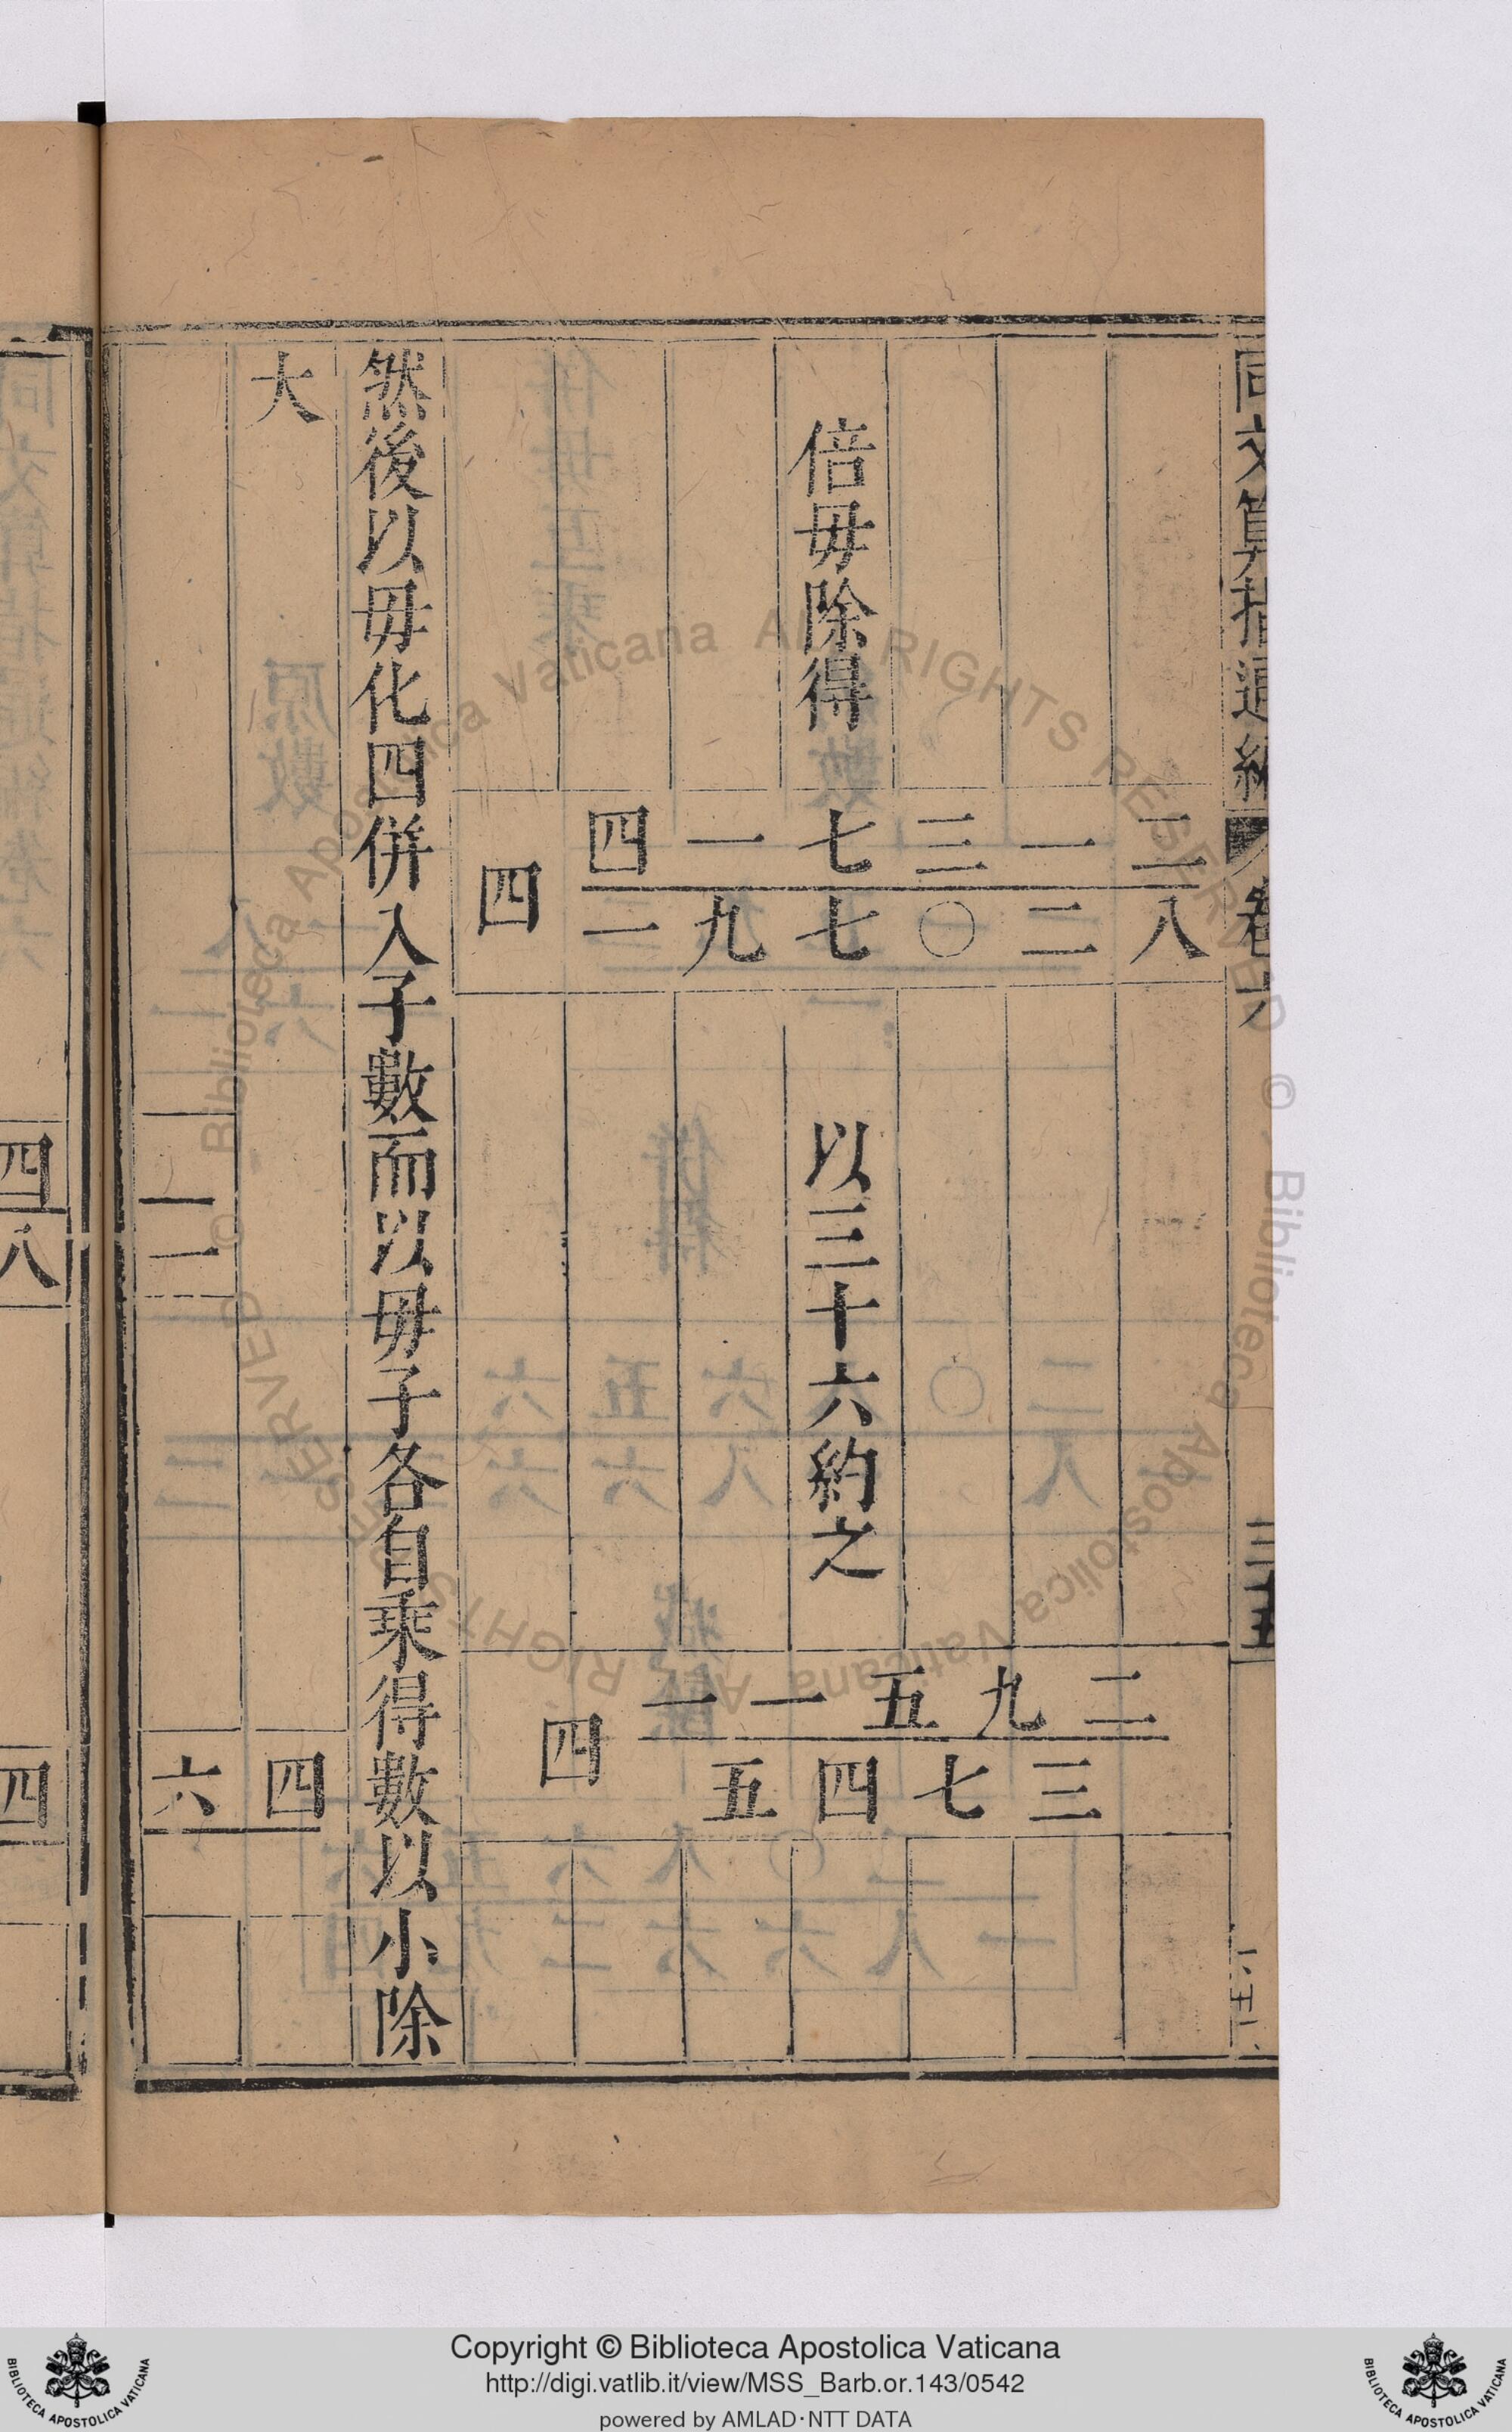 同文算指通編 卷六 三十五
倍毋除得
四 四一七三一二
一九七〇二八
以三十六約之
四 一一五九二
五四七三
然後以毋化四併入子數而以毋子各自乘得數以小除
大
一一
六四
四八
四
© Biblioteca Apostolica Vaticana ALL RIGHTS RESERVED
© Biblioteca Apostolica Vaticana ALL RIGHTS RESERVED
Copyright © Biblioteca Apostolica Vaticana
http://digi.vatlib.it/view/MSS_Barb.or.143/0542
powered by AMLAD·NTT DATA
BIBLIOTECA APOSTOLICA VATICANA
BIBLIOTECA APOSTOLICA VATICANA